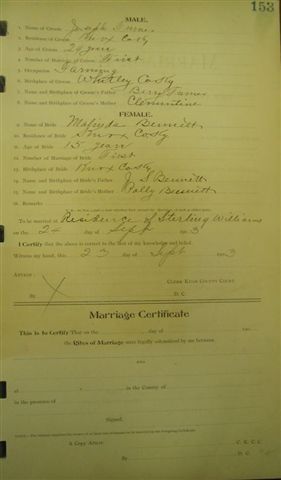 153
MALE.
1. Name of Groom Joseph Turner
2. Residence of Groom Knox Co Ky
3. Age of Groom 29 years
4. Number of Marriage of Groom First
5. Occupation Farming
6. Birthplace of Groom Whitley Co Ky
7. Name and Birthplace of Groom's Father Berry Turner
8. Name and Birthplace of Groom's Mother Clementine
FEMALE.
9. Name of Bride Malinda Bennett
10. Residence of Bride Knox Co Ky
11. Age of Bride 15 years
12. Number of Marriage of Bride First
13. Birthplace of Bride Knox Co Ky
14. Name and Birthplace of Bride's Father J. S. Bennett
15. Name and Birthplace of Bride's Mother Polly Bennett
16. Remarks
To be married at Residence of Sterling Williams
on the 24 day of Sept 190 3
I Certify that the above is correct to the best of my knowledge and belief.
Witness my hand, this 23 day of Sept 190 3
Attest:
Clerk Knox County Court
By X D. C.
Marriage Certificate
This Is to Certify That on the day of
the Rites of Marriage were legally solemnized by me between
AND
at in the County of
in the presence of
Signed,
A Copy Attest: C. K. C. C.
By D. C.